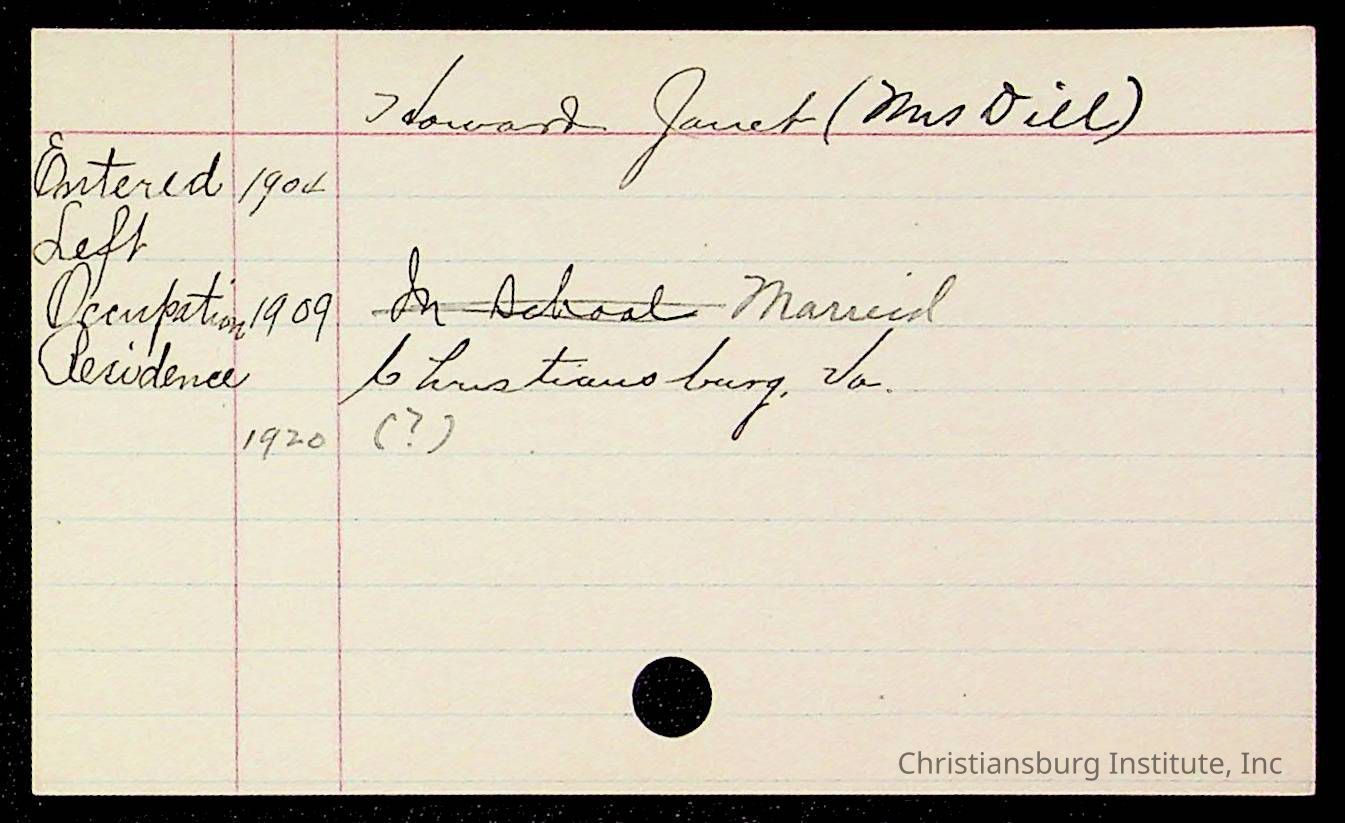 Howard Janet (Mrs Dill)
Entered 1904
Left
Occupation 1909 In School Married
Residence Christiansburg, Va.
1920 (?)
Christiansburg Institute, Inc